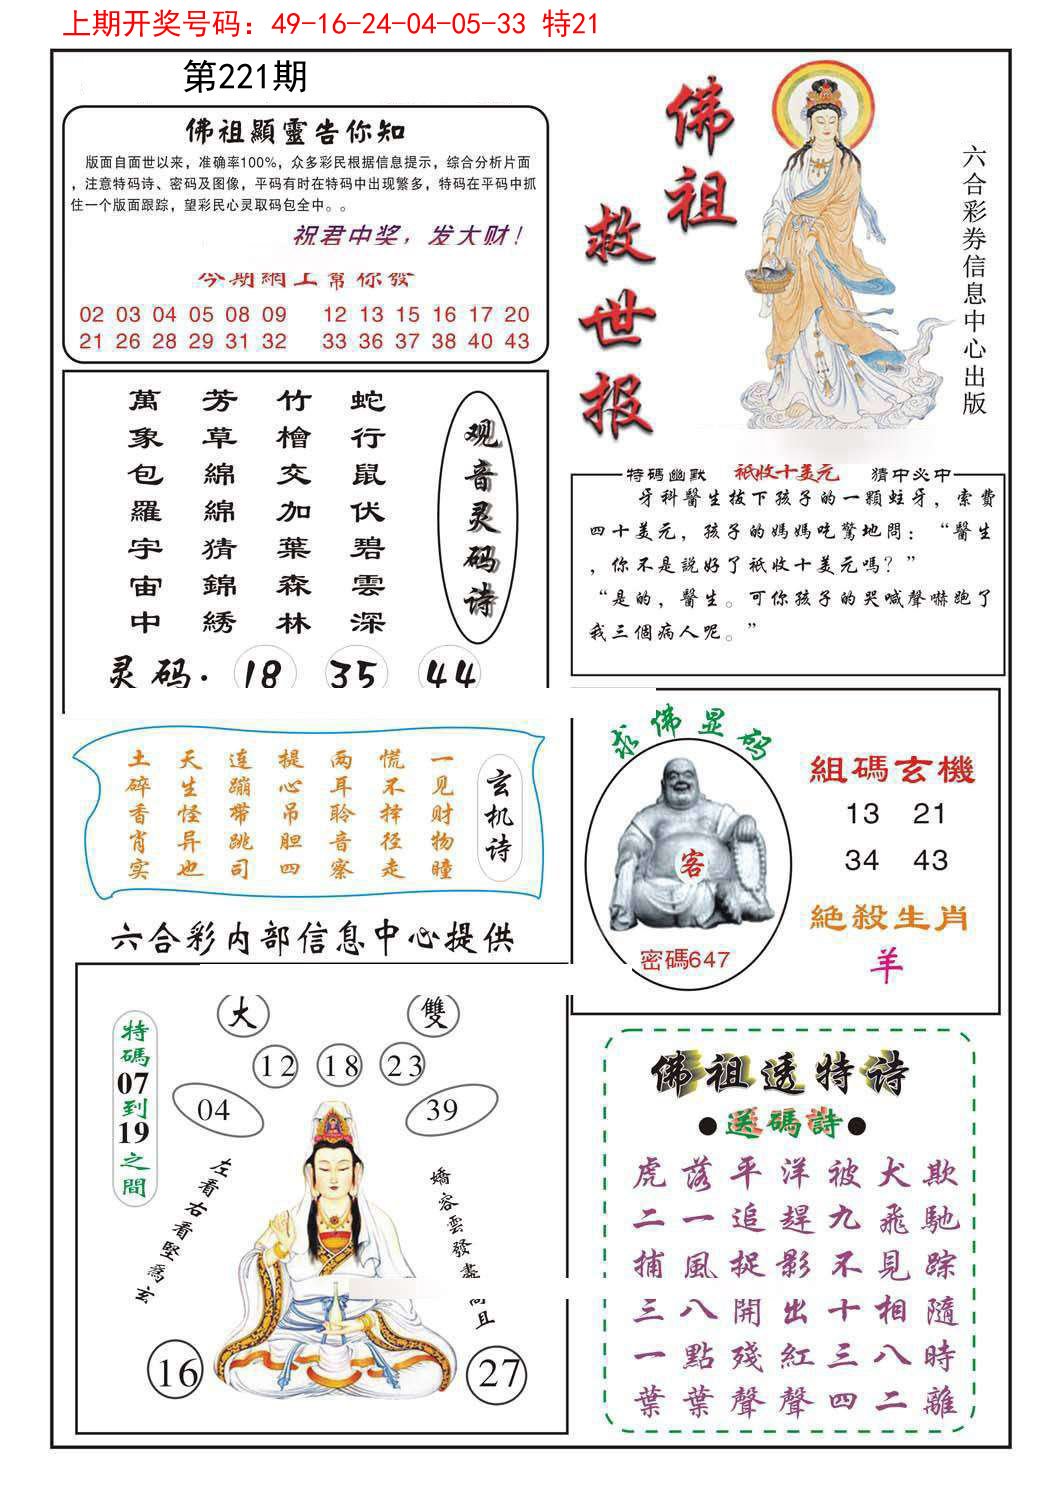 上期开奖号码：49-16-24-04-05-33 特21
第221期
佛祖顯靈告你知
版面自面世以来，准确率100%，众多彩民根据信息提示，综合分析片面
，注意特码诗、密码及图像，平码有时在特码中出现繁多，特码在平码中抓
住一个版面跟踪，望彩民心灵取码包全中。。
祝君中奖，发大财！
今期網上幫你發
02 03 04 05 08 09 12 13 15 16 17 20
21 26 28 29 31 32 33 36 37 38 40 43
佛祖
救世报
六合彩券信息中心出版
蛇行鼠伏碧雲深
竹檜交加葉森林
芳草綿綿猜錦綉
萬象包羅宇宙中
观音灵码诗
灵码．18 35 44
特碼幽默 祇收十美元 猜中必中
牙科醫生拔下孩子的一顆蛀牙，索費
四十美元，孩子的媽媽吃驚地問：“醫生
，你不是說好了祇收十美元嗎？”
“是的，醫生。可你孩子的哭喊聲嚇跑了
我三個病人呢。”
玄机诗
一见财物瞳
慌不择径走
两耳聆音察
提心吊胆四
连蹦带跳司
天生怪异也
土碎香肖实
求佛显码
客
密碼647
組碼玄機
13 21
34 43
絕殺生肖
羊
六合彩内部信息中心提供
大 雙
12 18 23
04 39
特碼07到19之間
左看右看堅爲玄
嬌容雲發盡高且
16 27
佛祖透特诗
●送碼詩●
虎落平洋被犬欺
二一追趕九飛馳
捕風捉影不見踪
三八開出十相隨
一點殘紅三八時
葉葉聲聲四二離